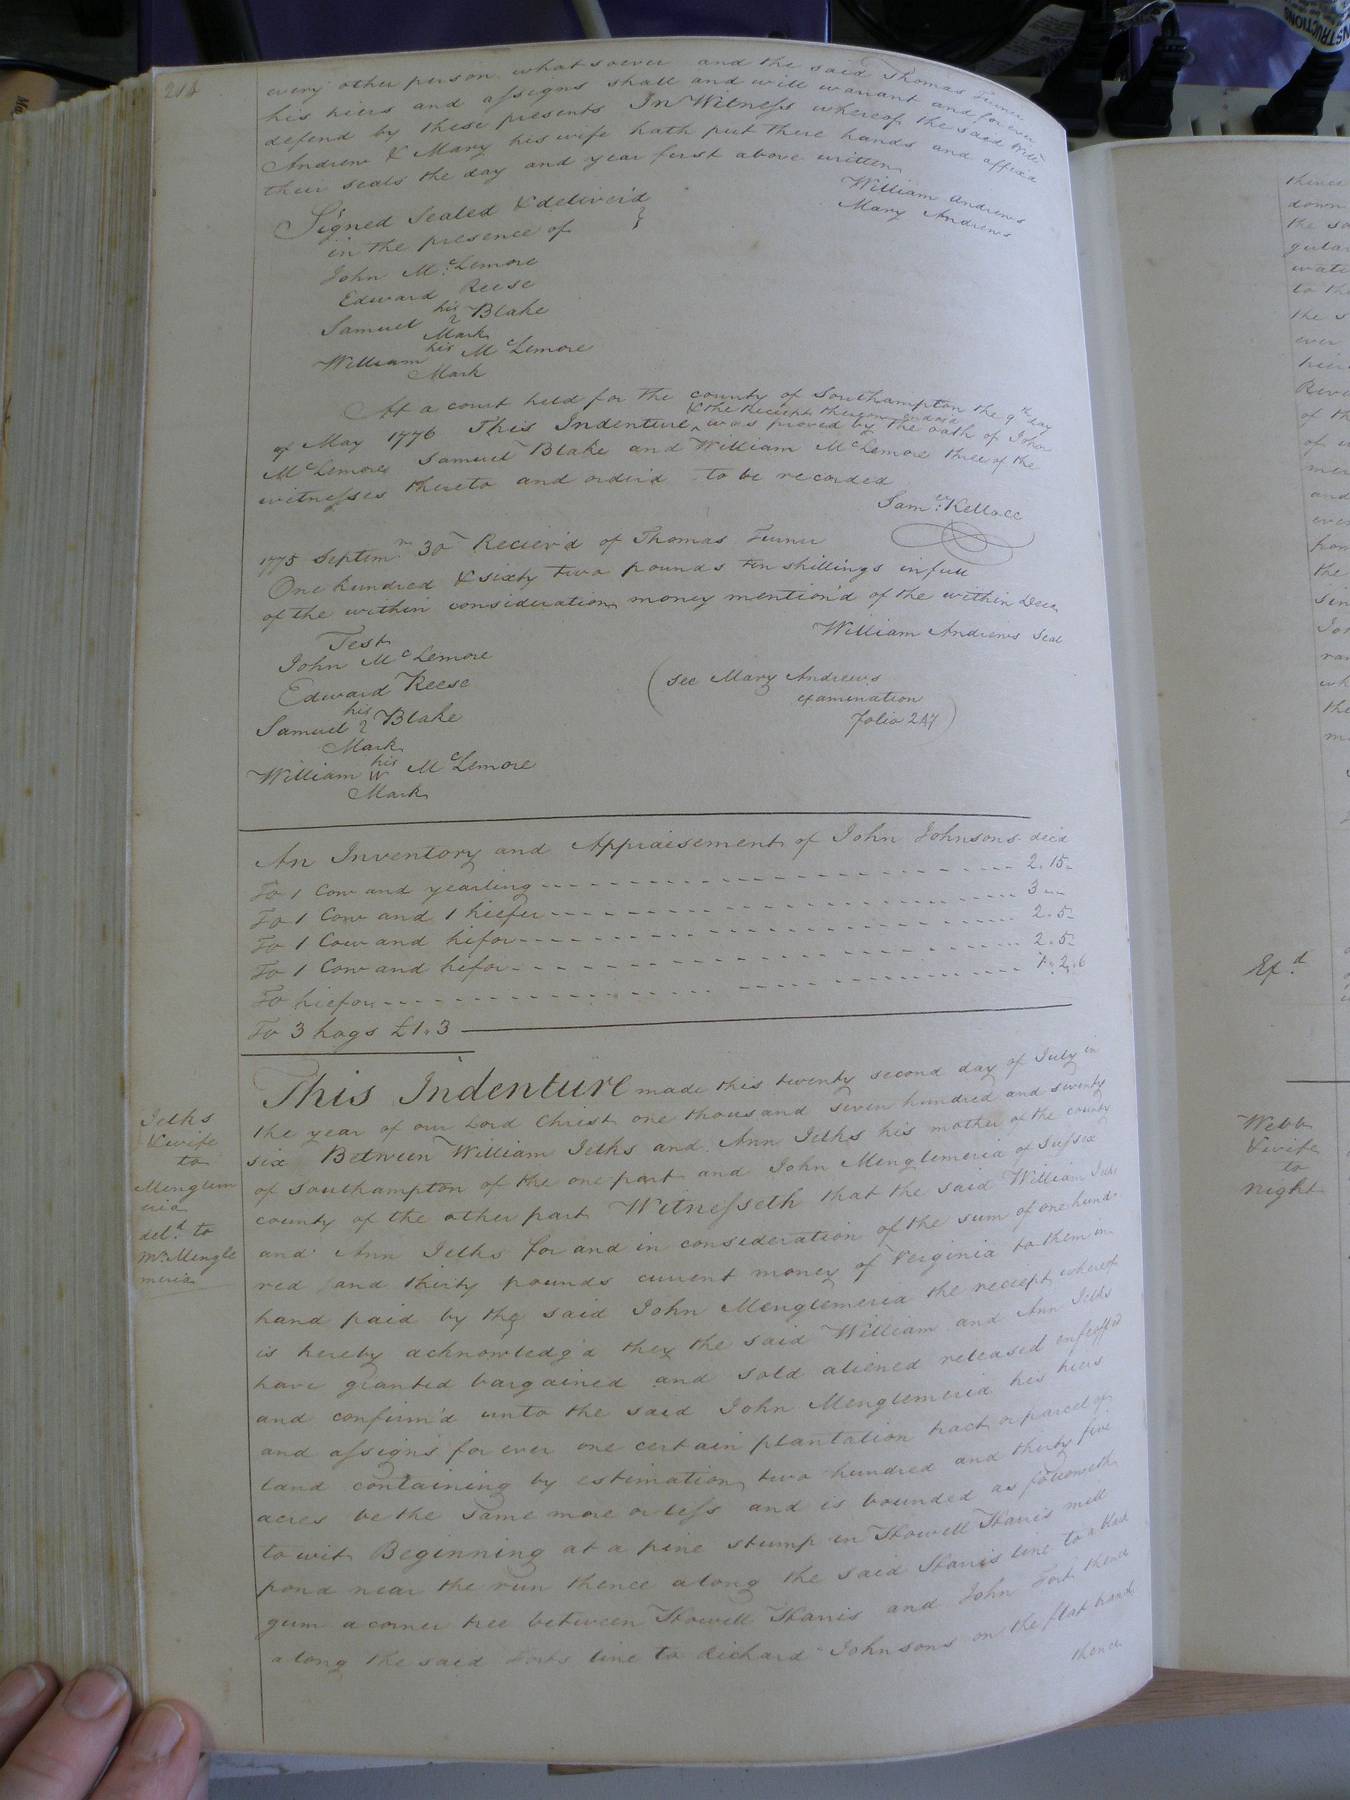 every other person whatsoever and the said Thomas Turner
his hiers and assigns shall and will warant and for ever
defend by these presents In Witness whereof the said Will
Andrew & Mary his wife hath put there hands and affixd
their seals the day and year first above written
William Andrews
Mary Andrews
Signed Sealed & deliver'd
in the presence of
John Mc Lemore
Edward Reese
his
Samuel 2 Blake
Mark
his
William Mc Lemore
Mark
At a court held for the county of Southampton the 9th day
& the Reciept thereon
of May 1776 This Indenture ^ was proved by the oath of John
McLemore Samuel Blake and William McLemore three of the
witnesses thereto and order'd to be recorded
Samll Kello CC
1775 Septem 30 Reciev'd of Thomas Turner
One hundred & sixty two pounds ten shillings in full
of the within consideration money mention'd of the within Deed
William Andrews Seal
Test
John Mc Lemore
Edward Reese
his
Samuel 2 Blake
Mark
his
William W Mc Lemore
Mark
(see Mary Andrews
examination
folio 247)
An Inventory and Appraisement of John Johnsons dec'd
To 1 Cow and yearling 2.15-
To 1 Cow and 1 hiefer 3 -
To 1 Cow and hifor 2.5-
To 1 Cow and hefor 2.5-
To hiefor 1.2.6
To 3 hogs £1.3
Jelks
& wife
to
Menglem
eria
deld. to
Mr. Mengle
meria
This Indenture made this twenty second day of July in
the year of our Lord Christ one thousand seven hundred and seventy
six Between William Jelks and Ann Jelks his mother of the county
of Southampton of the one part and John Menglemeria of Sussex
county of the other part Witnesseth that the said William Jelks
and Ann Jelks for and in consideration of the sum of one hund
red and thirty pounds current money of Verginia to them in
hand paid by the said John Menglemeria the reciept whereof
is hereby acknowledg'd they the said William and Ann Jelks
have granted bargained and sold aliened released enfeoffed
and confirm'd unto the said John Menglemeria his hiers
and assigns for ever one certain plantation tract or parcel of
land containing by estimation two hundred and thirty five
acres be the same more or less and is bounded as followeth
to wit Beginning at a pine stump in Howell Harris mill
pond near the run thence along the said Harris line to a black
gum a corner tree between Howell Harris and John Fort thence
along the said Forts line to Richard Johnsons on the flat
thence
down
to the
ever
of the
and
the
Exd.
Webb
& wife
to
night